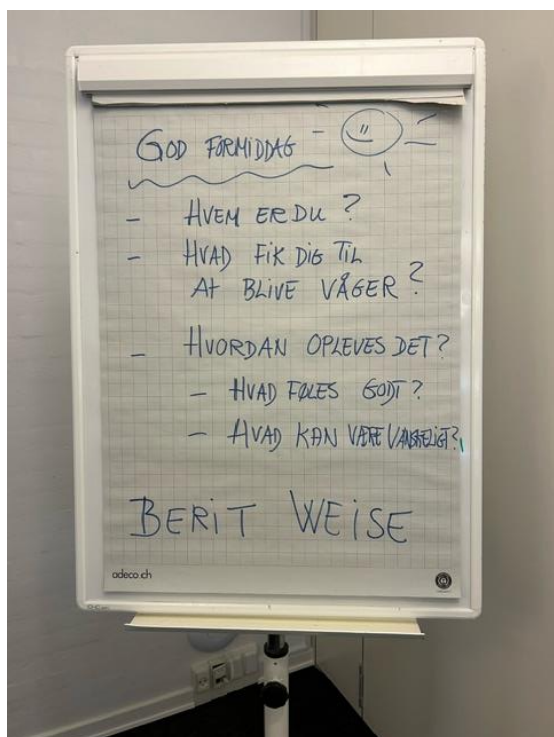 GOD FORMIDDAG
- HVEM ER DU?
- HVAD FIK DIG TIL
AT BLIVE VÅGER?
- HVORDAN OPLEVES DET?
- HVAD FØLES GODT?
- HVAD KAN VÆRE VANSKELIGT?
BERIT WEISE
adeco.ch